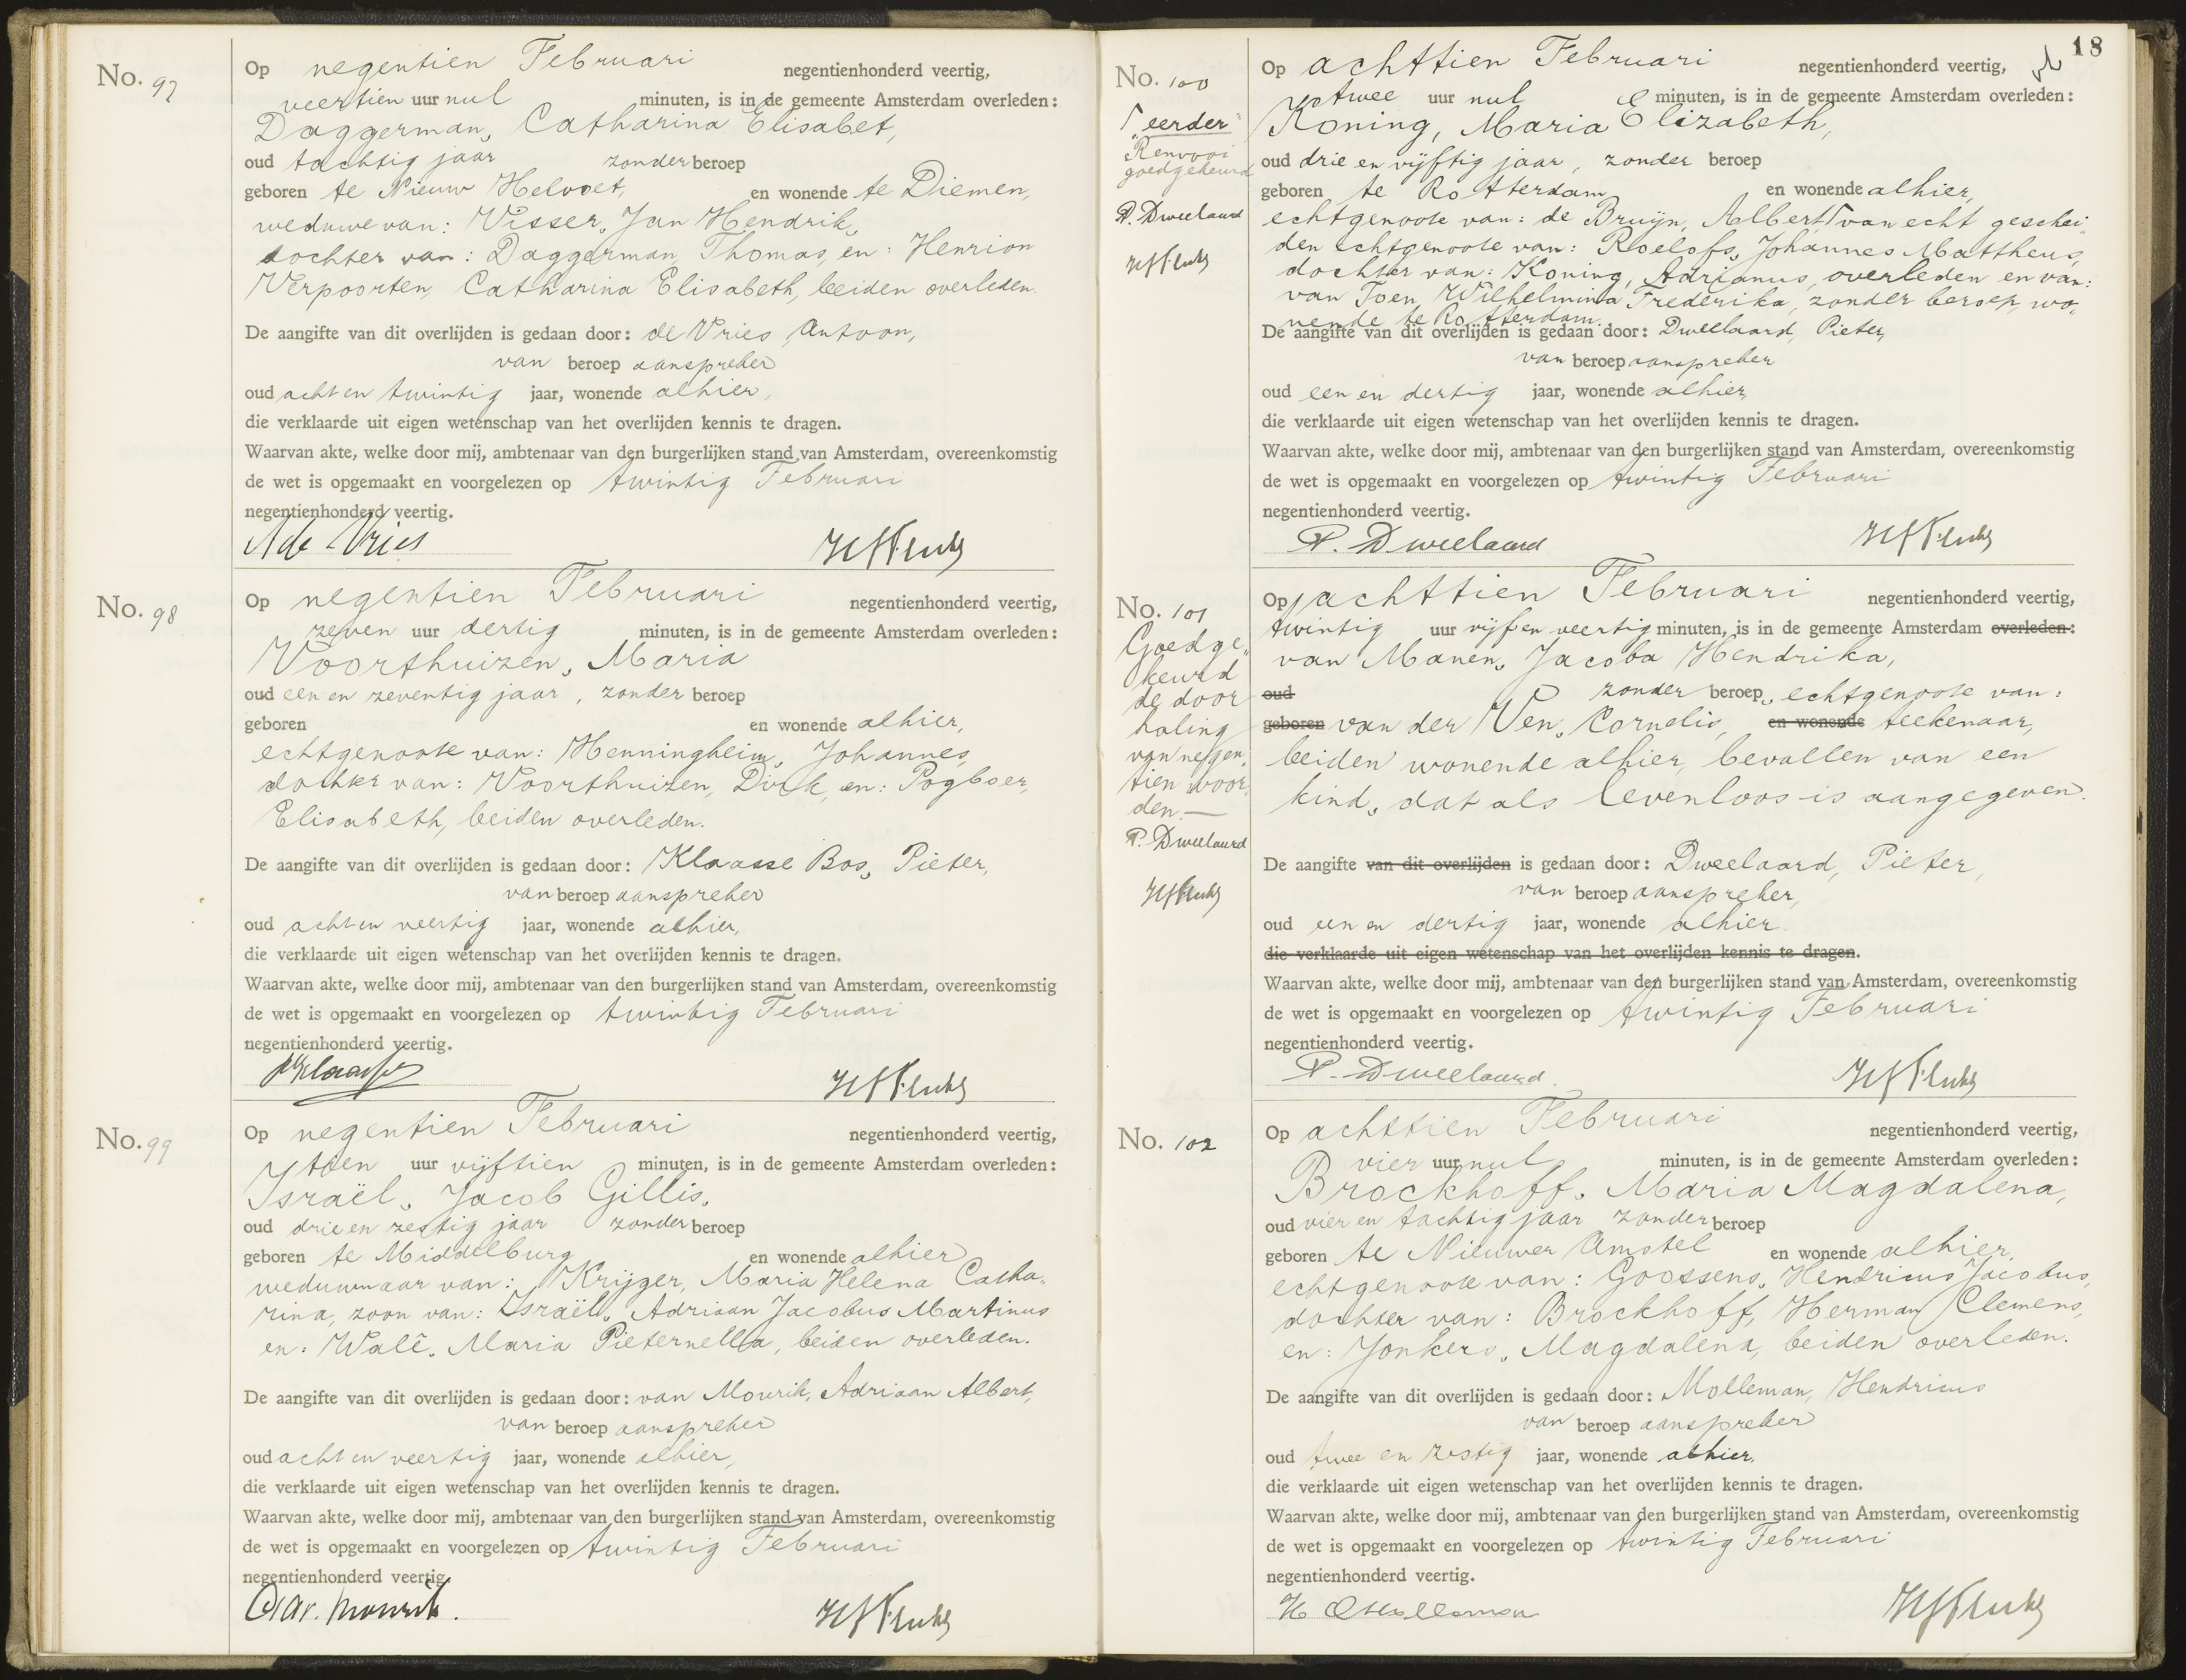 No. 97
Op negentien Februari negentienhonderd veertig,
veertien uur nul minuten, is in de gemeente Amsterdam overleden:
Daggerman, Catharina Elisabet,
oud tachtig jaar zonder beroep
geboren te Nieuw Helvoet, en wonende te Diemen,
weduwe van: Visser, Jan Hendrik,
dochter van: Daggerman, Thomas, en: Henrion
Verpoorten, Catharina Elisabeth, beiden overleden.
De aangifte van dit overlijden is gedaan door: de Vries, Antoon,
van beroep aanspreker
oud acht en twintig jaar, wonende alhier,
die verklaarde uit eigen wetenschap van het overlijden kennis te dragen.
Waarvan akte, welke door mij, ambtenaar van den burgerlijken stand van Amsterdam, overeenkomstig
de wet is opgemaakt en voorgelezen op twintig Februari
negentienhonderd veertig.
A de Vries
No. 98
Op negentien Februari negentienhonderd veertig,
zeven uur dertig minuten, is in de gemeente Amsterdam overleden:
Voorthuizen, Maria
oud een en zeventig jaar, zonder beroep
geboren en wonende alhier,
echtgenoote van: Henningheim, Johannes,
dochter van: Voorthuizen, Dirk, en: Pogboer,
Elisabeth, beiden overleden.
De aangifte van dit overlijden is gedaan door: Klaasse Bos, Pieter,
van beroep aanspreker
oud acht en veertig jaar, wonende alhier,
die verklaarde uit eigen wetenschap van het overlijden kennis te dragen.
Waarvan akte, welke door mij, ambtenaar van den burgerlijken stand van Amsterdam, overeenkomstig
de wet is opgemaakt en voorgelezen op twintig Februari
negentienhonderd veertig.
No. 99
Op negentien Februari negentienhonderd veertig,
tien uur vijftien minuten, is in de gemeente Amsterdam overleden:
Israël, Jacob Gillis,
oud drie en zestig jaar zonder beroep
geboren te Middelburg en wonende alhier
weduwnaar van: Krijger, Maria Helena Catha-
rina, zoon van: Israël, Adriaan Jacobus Martinus
en: Walê, Maria Pieternella, beiden overleden.
De aangifte van dit overlijden is gedaan door: van Mourik, Adriaan Albert,
van beroep aanspreker
oud acht en veertig jaar, wonende alhier,
die verklaarde uit eigen wetenschap van het overlijden kennis te dragen.
Waarvan akte, welke door mij, ambtenaar van den burgerlijken stand van Amsterdam, overeenkomstig
de wet is opgemaakt en voorgelezen op twintig Februari
negentienhonderd veertig.
18
No. 100
"eerder"
Renvooi
goedgekeurd
P. Dweelaard
Op achttien Februari negentienhonderd veertig,
twee uur nul minuten, is in de gemeente Amsterdam overleden:
Koning, Maria Elizabeth,
oud drie en vijftig jaar, zonder beroep
geboren te Rotterdam en wonende alhier,
echtgenoote van: de Bruijn, Albert, van echt geschei-
den echtgenoote van: Roelofs, Johannes Mattheus,
dochter van: Koning, Adrianus, overleden en van:
van Toen, Wilhelmina Frederika, zonder beroep, wo-
nende te Rotterdam.
De aangifte van dit overlijden is gedaan door: Dweelaard, Pieter,
van beroep aanspreker
oud een en dertig jaar, wonende alhier,
die verklaarde uit eigen wetenschap van het overlijden kennis te dragen.
Waarvan akte, welke door mij, ambtenaar van den burgerlijken stand van Amsterdam, overeenkomstig
de wet is opgemaakt en voorgelezen op twintig Februari
negentienhonderd veertig.
P. Dweelaard
No. 101
Goedge-
keurd
de door
haling
van negen-
tien woor-
den.—
P. Dweelaard
Op achttien Februari negentienhonderd veertig,
twintig uur vijf en veertig minuten, is in de gemeente Amsterdam overleden:
van Manen, Jacoba Hendrika,
oud zonder beroep, echtgenoote van:
geboren van der Ven, Cornelis, en wonende teekenaar,
beiden wonende alhier, bevallen van een
kind, dat als levenloos is aangegeven.
De aangifte van dit overlijden is gedaan door: Dweelaard, Pieter,
van beroep aanspreker,
oud een en dertig jaar, wonende alhier.
die verklaarde uit eigen wetenschap van het overlijden kennis te dragen.
Waarvan akte, welke door mij, ambtenaar van den burgerlijken stand van Amsterdam, overeenkomstig
de wet is opgemaakt en voorgelezen op twintig Februari
negentienhonderd veertig.
P. Dweelaard.
No. 102
Op achttien Februari negentienhonderd veertig,
vier uur nul minuten, is in de gemeente Amsterdam overleden:
Brockhoff, Maria Magdalena,
oud vier en tachtig jaar zonder beroep
geboren te Nieuwer Amstel en wonende alhier,
echtgenoote van: Goossens, Hendricus Jacobus,
dochter van: Brockhoff, Herman Clemens,
en: Jonkers, Magdalena, beiden overleden.
De aangifte van dit overlijden is gedaan door: Molleman, Hendricus
van beroep aanspreker
oud twee en zestig jaar, wonende alhier,
die verklaarde uit eigen wetenschap van het overlijden kennis te dragen.
Waarvan akte, welke door mij, ambtenaar van den burgerlijken stand van Amsterdam, overeenkomstig
de wet is opgemaakt en voorgelezen op twintig Februari
negentienhonderd veertig.
H Molleman